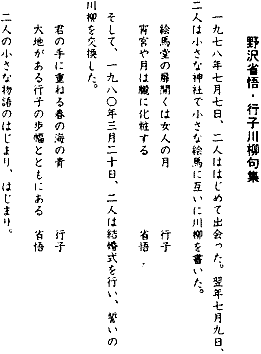 野沢省悟・行子川柳句集
一九七八年七月七日、二人ははじめて出会った。翌年七月九日、
二人は小さな神社で小さな絵馬に互いに川柳を書いた。
絵馬堂の扉開くは女人の月 行子
宵宮や月は朧に化粧する 省悟
そして、一九八〇年三月二十日、二人は結婚式を行い、誓いの
川柳を交換した。
君の手に重ねる春の海の青 行子
大地がある行子の歩幅とともにある 省悟
二人の小さな物語のはじまり、はじまり。